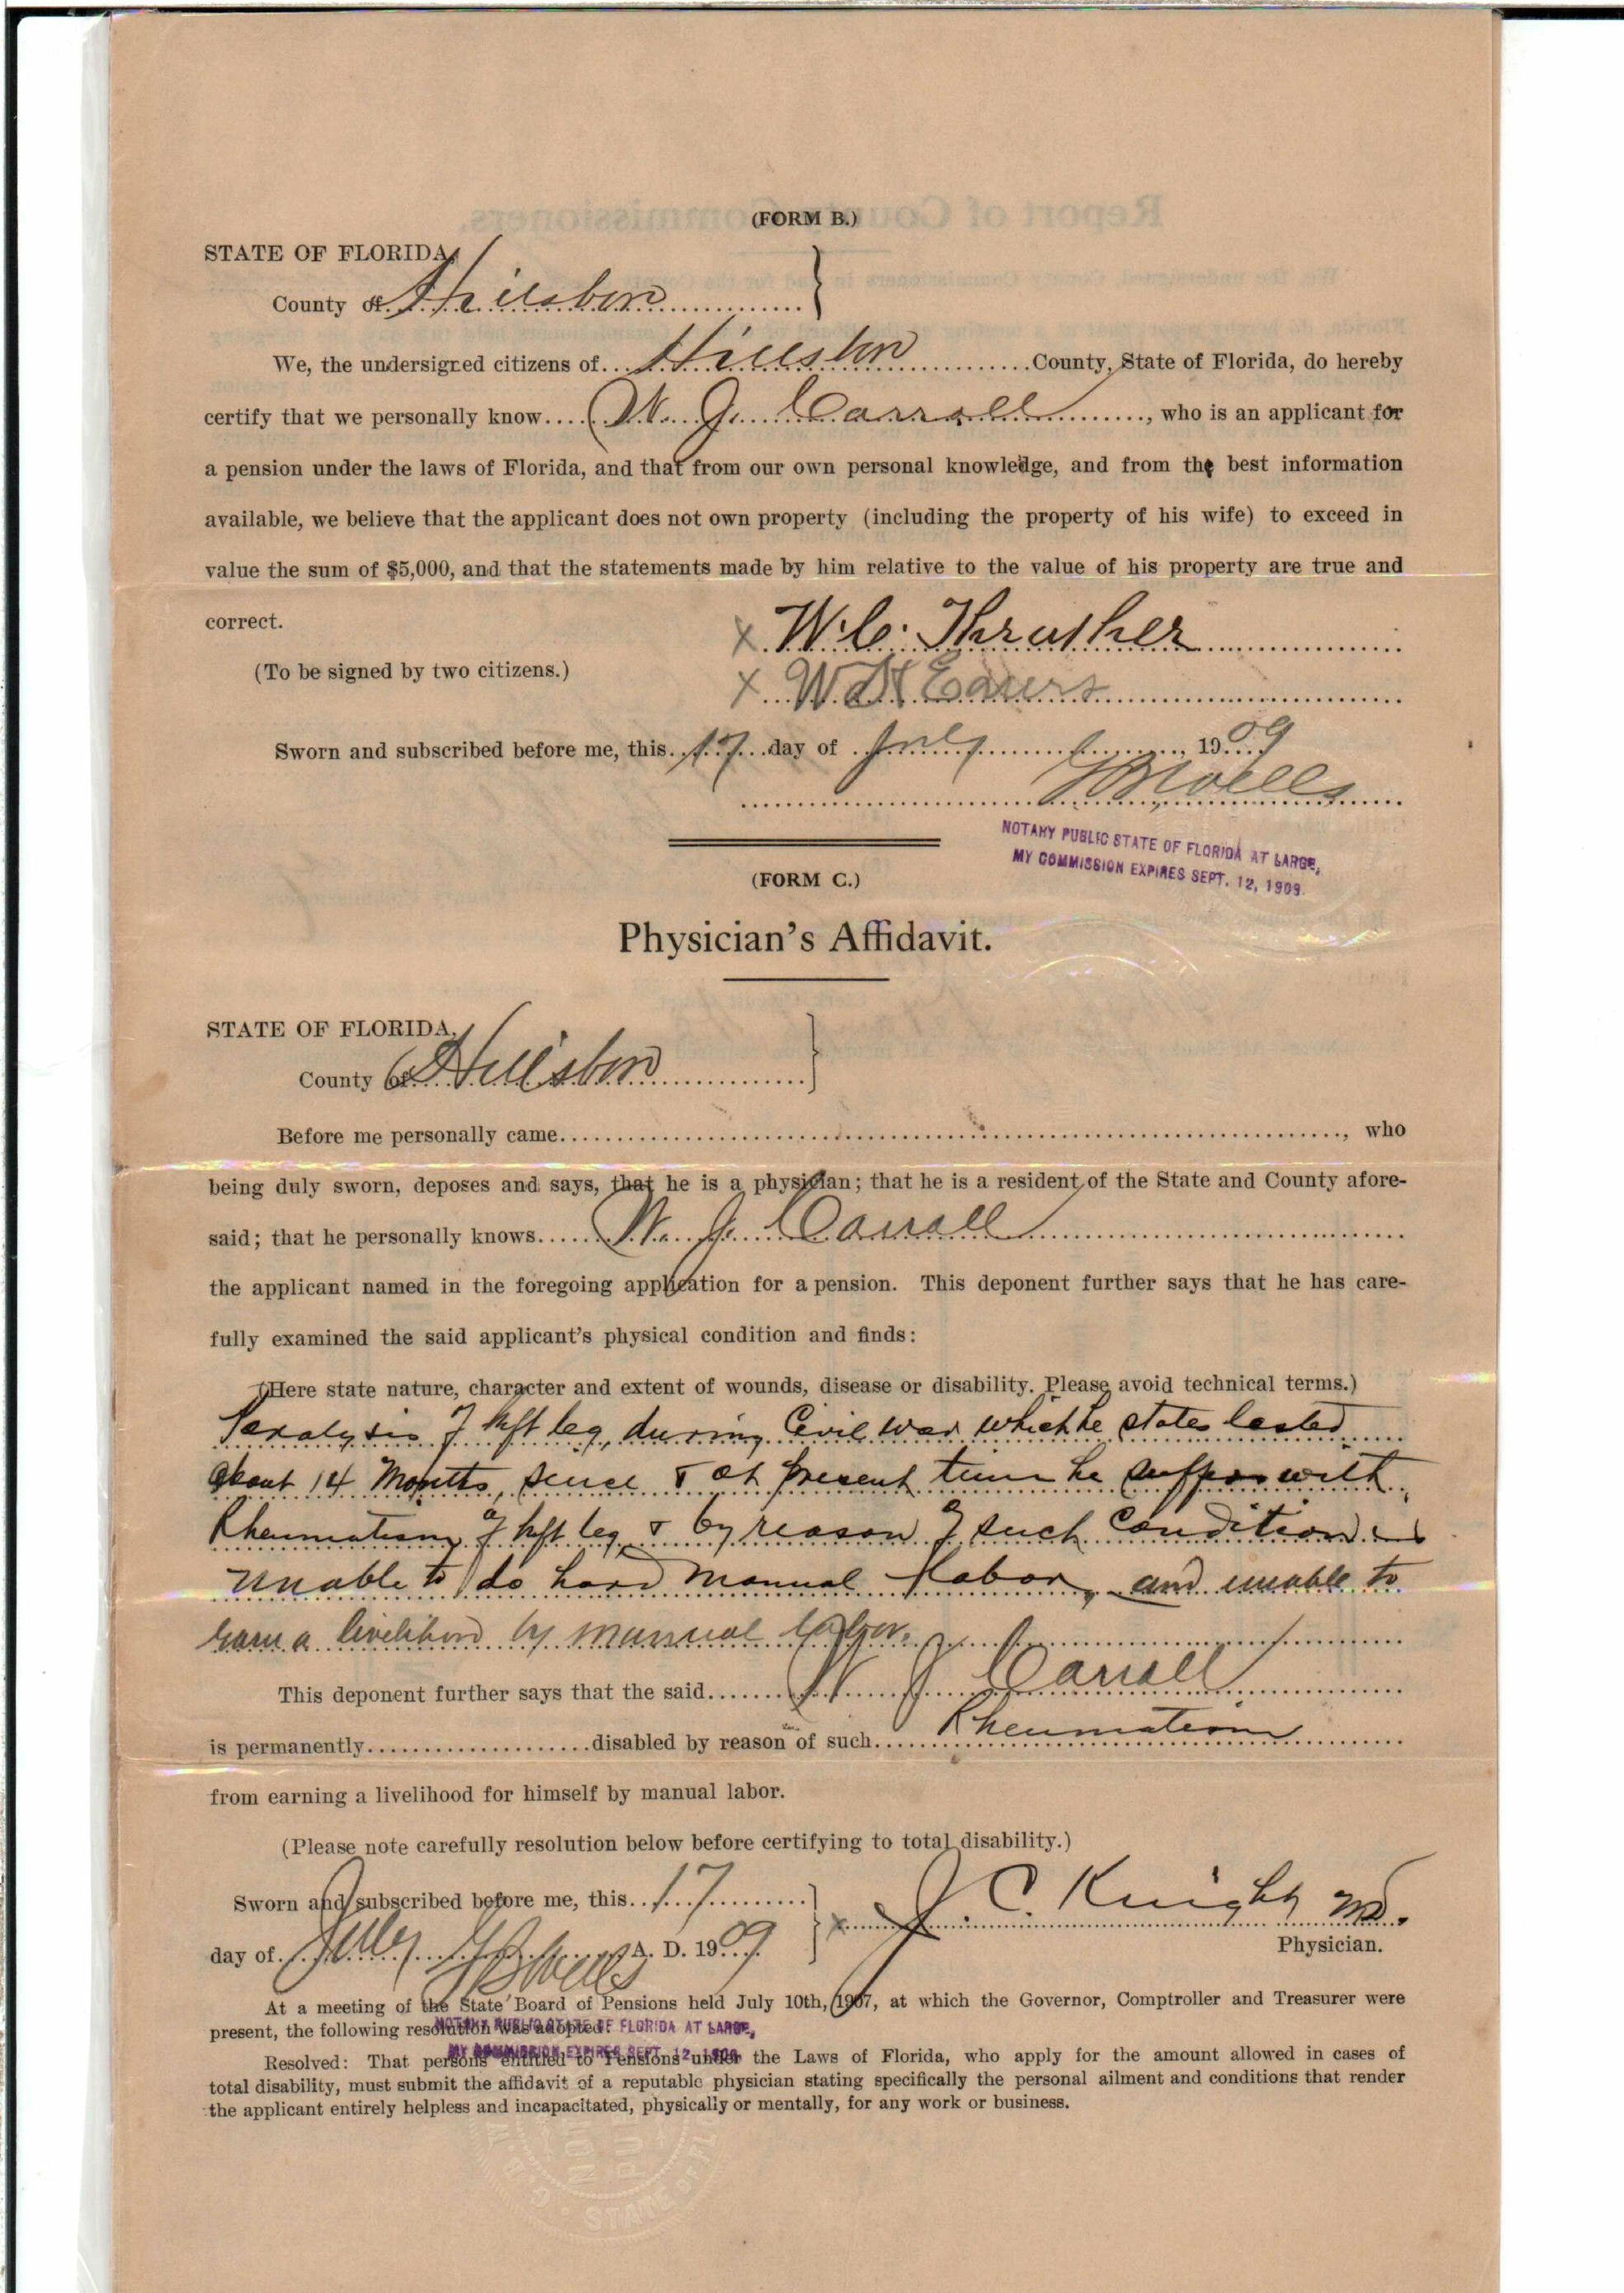 (FORM B.)
STATE OF FLORIDA,
County of Hillsboro
We, the undersigned citizens of Hillsboro County, State of Florida, do hereby
certify that we personally know W. J. Carroll, who is an applicant for
a pension under the laws of Florida, and that from our own personal knowledge, and from the best information
available, we believe that the applicant does not own property (including the property of his wife) to exceed in
value the sum of $5,000, and that the statements made by him relative to the value of his property are true and
correct.
x W. C. Thrasher
(To be signed by two citizens.)
x W H
Sworn and subscribed before me, this 17 day of July, 1909
Wells
NOTARY PUBLIC STATE OF FLORIDA AT LARGE,
MY COMMISSION EXPIRES SEPT. 12, 1909.
(FORM C.)
Physician's Affidavit.
STATE OF FLORIDA,
County of Hillsboro
Before me personally came, who
being duly sworn, deposes and says, that he is a physician; that he is a resident of the State and County afore-
said; that he personally knows W. J. Carroll
the applicant named in the foregoing application for a pension. This deponent further says that he has care-
fully examined the said applicant's physical condition and finds:
(Here state nature, character and extent of wounds, disease or disability. Please avoid technical terms.)
Paralysis of left leg, during Civil War which he states lasted
about 14 Months, since & at present time he suffers with
Rheumatism of left leg & by reason of such Condition is
unable to do hard manual labor, and unable to
earn a livelihood by manual labor.
This deponent further says that the said W J Carroll
is permanently disabled by reason of such Rheumatism
from earning a livelihood for himself by manual labor.
(Please note carefully resolution below before certifying to total disability.)
Sworn and subscribed before me, this 17
x J. C. Knight MD.
day of July A. D. 1909
Physician.
Wells
At a meeting of the State Board of Pensions held July 10th, 1907, at which the Governor, Comptroller and Treasurer were
present, the following resolution was adopted:
NOTARY PUBLIC STATE OF FLORIDA AT LARGE,
MY COMMISSION EXPIRES SEPT. 12, 1909
Resolved: That persons entitled to Pensions under the Laws of Florida, who apply for the amount allowed in cases of
total disability, must submit the affidavit of a reputable physician stating specifically the personal ailment and conditions that render
the applicant entirely helpless and incapacitated, physically or mentally, for any work or business.